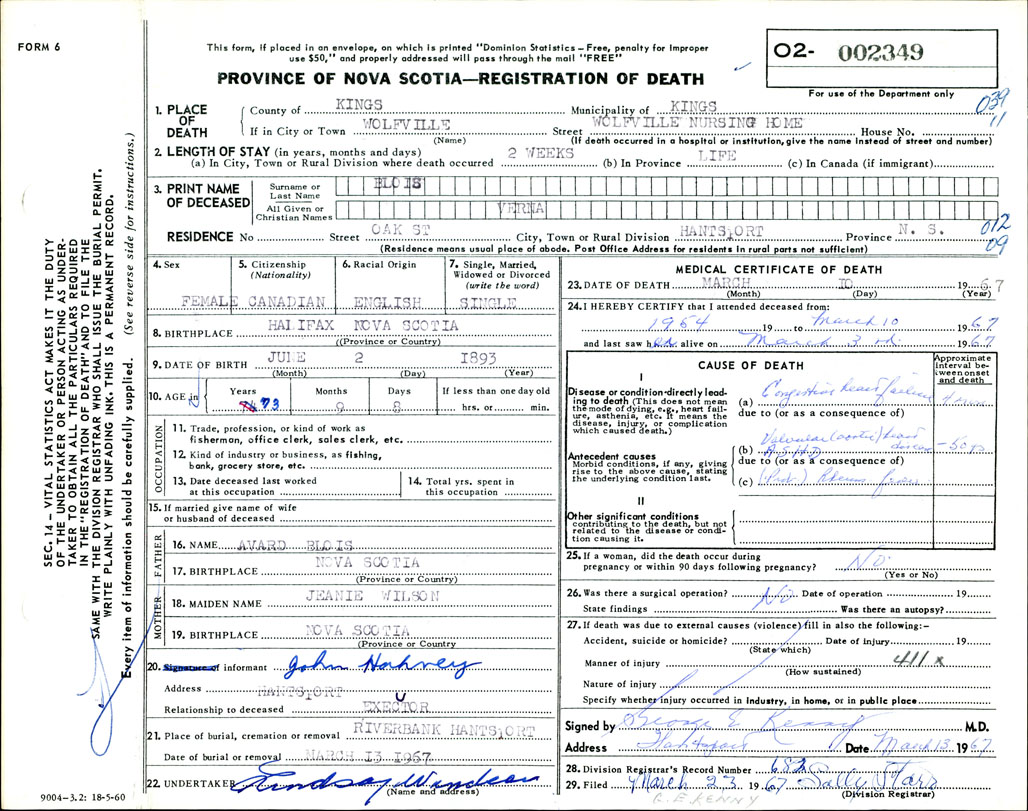 FORM 6
This form, if placed in an envelope, on which is printed "Dominion Statistics – Free, penalty for Improper
use $50," and properly addressed will pass through the mail "FREE"
PROVINCE OF NOVA SCOTIA—REGISTRATION OF DEATH
O2- 002349
For use of the Department only
039
11
1. PLACE OF DEATH
County of KINGS Municipality of KINGS
If in City or Town WOLFVILLE Street WOLFVILLE NURSING HOME House No.
(Name) (If death occurred in a hospital or institution, give the name instead of street and number)
2. LENGTH OF STAY (in years, months and days)
(a) In City, Town or Rural Division where death occurred 2 WEEKS (b) In Province LIFE (c) In Canada (if immigrant)
3. PRINT NAME OF DECEASED
Surname or Last Name BLOIS
All Given or Christian Names VERNA
RESIDENCE No Street OAK ST City, Town or Rural Division HANTSPORT Province N. S.
012
09
(Residence means usual place of abode. Post Office Address for residents in rural parts not sufficient)
4. Sex
FEMALE
5. Citizenship (Nationality)
CANADIAN
6. Racial Origin
ENGLISH
7. Single, Married, Widowed or Divorced (write the word)
SINGLE
8. BIRTHPLACE HALIFAX NOVA SCOTIA
((Province or Country)
9. DATE OF BIRTH JUNE 2 1893
(Month) (Day) (Year)
10. AGE in
Years Months Days If less than one day old
73 9 8 hrs. or min.
OCCUPATION
11. Trade, profession, or kind of work as
fisherman, office clerk, sales clerk, etc.
12. Kind of industry or business, as fishing,
bank, grocery store, etc.
13. Date deceased last worked
at this occupation
14. Total yrs. spent in
this occupation
15. If married give name of wife
or husband of deceased
FATHER
16. NAME AVARD BLOIS
17. BIRTHPLACE NOVA SCOTIA
(Province or Country)
MOTHER
18. MAIDEN NAME JEANIE WILSON
19. BIRTHPLACE NOVA SCOTIA
(Province or Country
20. Signature of informant John Hahvey
Address HANTSPORT
U
Relationship to deceased EXECTOR
21. Place of burial, cremation or removal RIVERBANK HANTSPORT
Date of burial or removal MARCH 13 1967
22. UNDERTAKER Lindsay Windsor
(Name and address)
9004-3.2: 18-5-60
MEDICAL CERTIFICATE OF DEATH
23. DATE OF DEATH MARCH 10 1967
(Month) (Day) (Year)
24. I HEREBY CERTIFY that I attended deceased from:
1954 19 to March 10 1967
and last saw her alive on March 3rd. 1967
CAUSE OF DEATH
Approximate interval between onset and death
I
Disease or condition directly leading to death (This does not mean the mode of dying, e.g., heart failure, asthenia, etc. It means the disease, injury, or complication which caused death.)
(a) Congestive heart failure
due to (or as a consequence of)
Antecedent causes
Morbid conditions, if any, giving rise to the above cause, stating the underlying condition last.
(b) Valvular (aortic) heart disease
A.S.H.D
due to (or as a consequence of)
(c)
II
Other significant conditions
contributing to the death, but not related to the disease or condition causing it.
25. If a woman, did the death occur during
pregnancy or within 90 days following pregnancy? No
(Yes or No)
26. Was there a surgical operation? No Date of operation 19
State findings Was there an autopsy?
27. If death was due to external causes (violence) fill in also the following:–
Accident, suicide or homicide? Date of injury 19
(State which)
Manner of injury 411 x
(How sustained)
Nature of injury
Specify whether injury occurred in Industry, in home, or in public place
Signed by George E Kenny M.D.
Address Hantsport Date March 13 1967
28. Division Registrar's Record Number 682
29. Filed March 23 1967 Sally Starr
(Division Registrar)
G.E KENNY
SEC. 14 – VITAL STATISTICS ACT MAKES IT THE DUTY
OF THE UNDERTAKER OR PERSON ACTING AS UNDER-
TAKER TO OBTAIN ALL THE PARTICULARS REQUIRED
IN THE "REGISTRATION OF DEATH" AND TO FILE THE
SAME WITH THE DIVISION REGISTRAR WHO SHALL ISSUE THE BURIAL PERMIT.
WRITE PLAINLY WITH UNFADING INK. THIS IS A PERMANENT RECORD.
Every item of information should be carefully supplied. (See reverse side for instructions.)